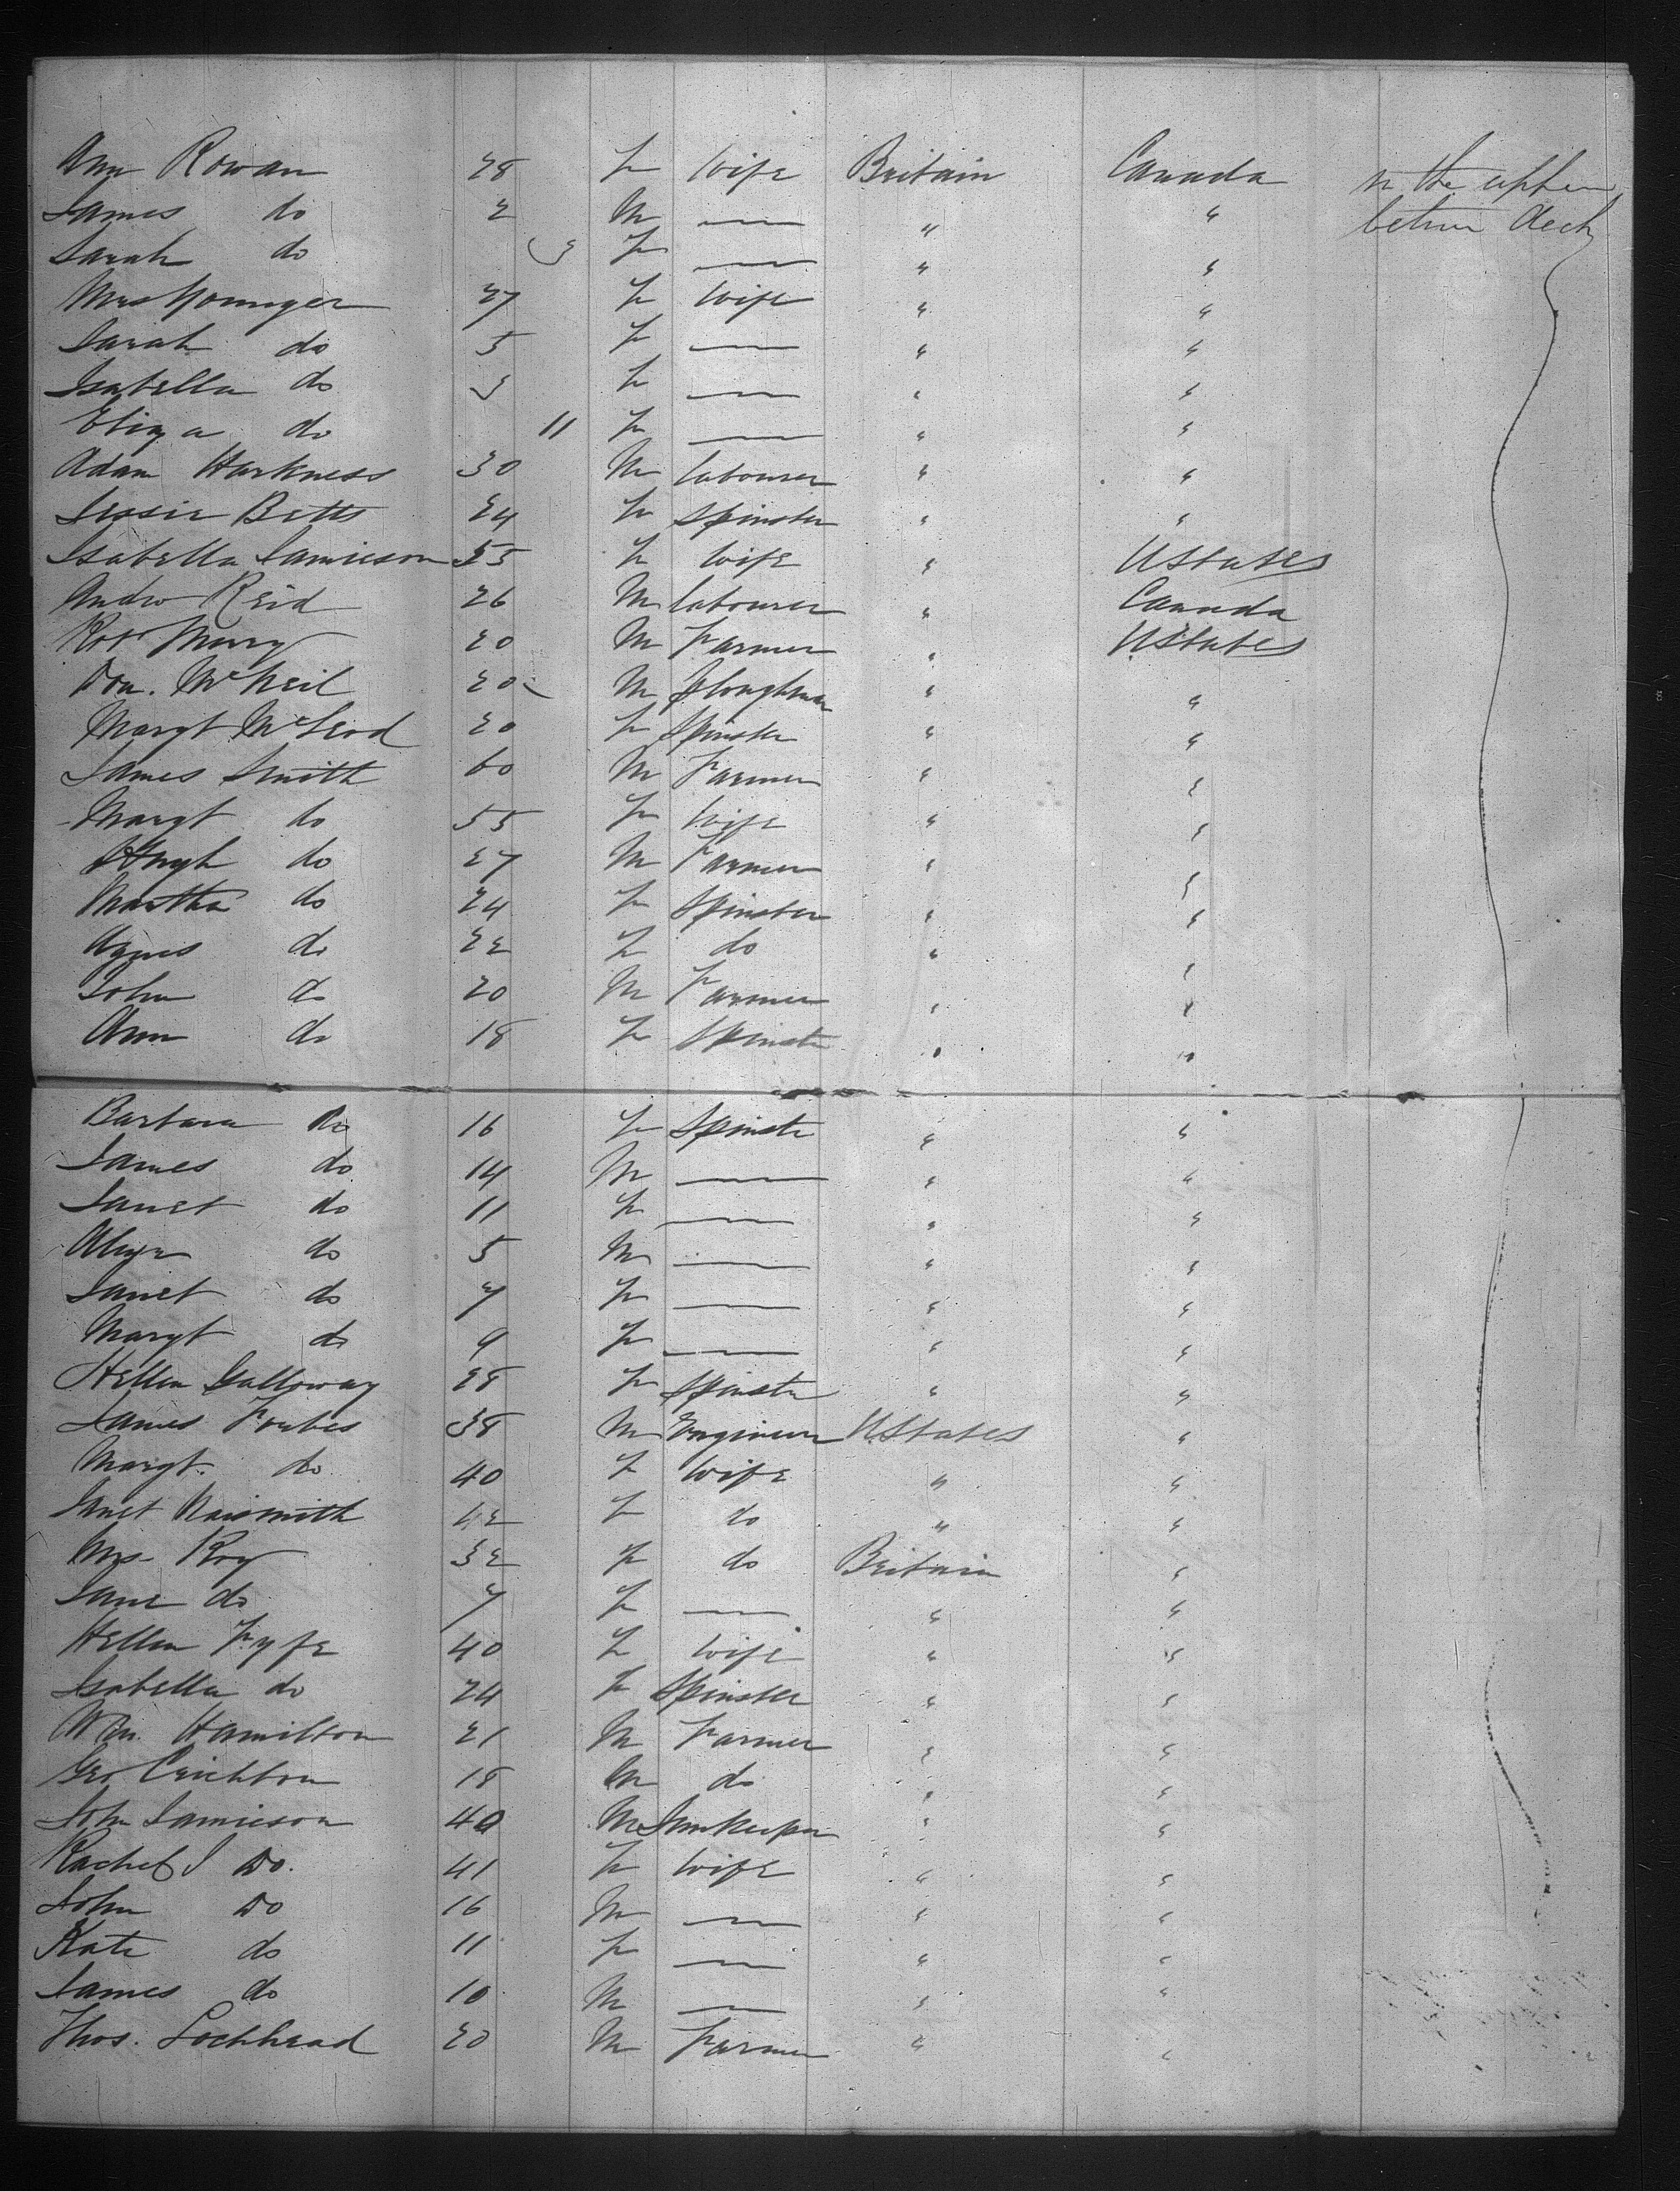 Ann Rowan 28 F Wife Britain Canada in the upper
James do 2 M — " " between deck
Sarah do 3 F — " "
Mrs Younger 27 F Wife " "
Sarah do 5 F — " "
Isabella do 3 F — " "
Eliza do 11 F — " "
Adam Harkness 30 M labourer " "
Jessie Betts 24 F Spinster " "
Isabella Jamieson 55 F Wife " UStates
Andw Reid 26 M labourer " Canada
Robt 20 M Farmer " UStates
Don. McNeil 20 M Ploughman " "
Margt McLeod 20 F Spinster " "
James Smith 60 M Farmer " "
Margt do 55 F Wife " "
Hugh do 27 M Farmer " "
Martha do 24 F Spinster " "
Agnes do 22 F do " "
John do 20 M Farmer " "
Ann do 18 F Spinstr " "
Barbara do 16 F Spinstr " "
James do 14 M — " "
Janet do 11 F — " "
do 5 M — " "
Janet do 7 F — " "
Margt do 9 F — " "
Hellen Galloway 28 F Spinstr " "
James Forbes 38 M Engineer UStates "
Margt. do 40 F Wife " "
Janet Naismith 42 F do " "
Mrs Roy 32 F do Britain "
Jane do 7 F — " "
Hellen Fyfe 40 F Wife " "
Isabella do 24 F Spinster " "
Wm. Hamilton 21 M Farmer " "
Geo Crichton 18 M do " "
John Jamieson 40 M Innkeeper " "
Rachel J Do. 41 F Wife " "
John Do 16 M — " "
Kate do 11 F — " "
James do 10 M — " "
Thos. Lochhead 20 M Farmer " "